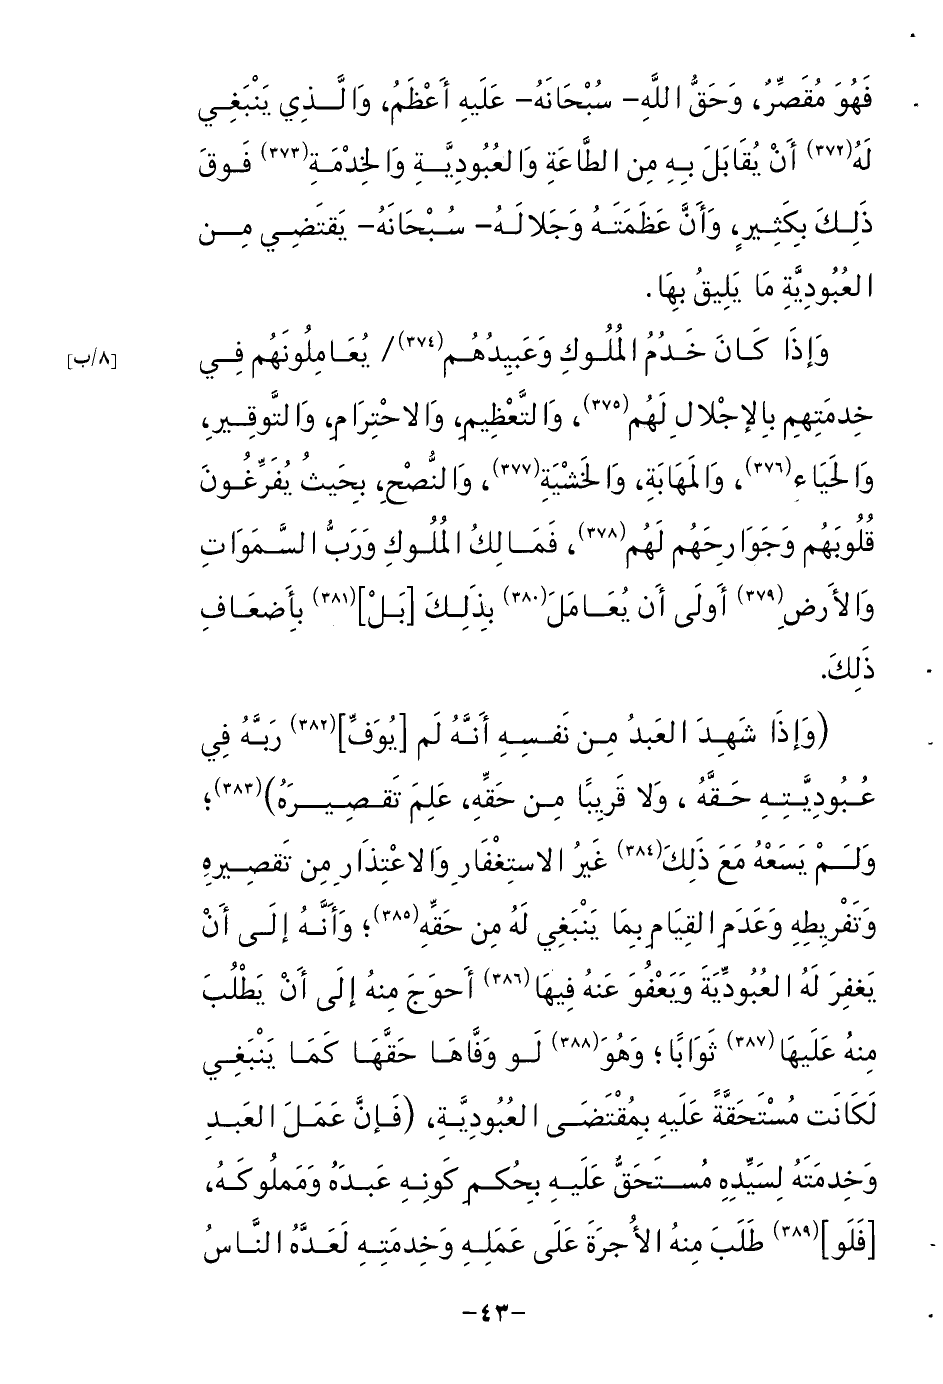 فَهُوَ مُقَصِّرٌ، وَحَقُّ اللَّهِ- سُبْحَانَهُ- عَلَيهِ أَعْظَمُ، وَالَّذِي يَنْبَغِي
لَهُ(٣٧٢) أَنْ يُقَابَلَ بِهِ مِن الطَّاعَةِ وَالعُبُودِيَّةِ وَالخِدْمَةِ(٣٧٣) فَوقَ
ذَلِكَ بِكَثِيرٍ، وَأَنَّ عَظَمَتَهُ وَجَلَالَهُ- سُبْحَانَهُ- يَقتَضِي مِن
العُبُودِيَّةِ مَا يَلِيقُ بِهَا.
وَإِذَا كَانَ خَدَمُ المُلُوكِ وَعَبِيدُهُم(٣٧٤)/ يُعَامِلُونَهُم فِي
[٨/ب]
خِدمَتِهِم بِالإِجْلَالِ لَهُم(٣٧٥)، وَالتَّعْظِيمِ، وَالاحْتِرَامِ، وَالتَّوقِيرِ،
وَالحَيَاءِ(٣٧٦)، وَالمَهَابَةِ، وَالخَشْيَةِ(٣٧٧)، وَالنُّصْحِ، بِحَيثُ يُفَرِّغُونَ
قُلُوبَهُم وَجَوَارِحَهُم لَهُم(٣٧٨)، فَمَالِكُ المُلُوكِ وَرَبُّ السَّمَوَاتِ
وَالأَرضِ(٣٧٩) أَولَى أَن يُعَامَلَ(٣٨٠) بِذَلِكَ [بَلْ](٣٨١) بِأَضعَافِ
ذَلِكَ.
(وَإِذَا شَهِدَ العَبدُ مِن نَفسِهِ أَنَّهُ لَم [يُوَفِّ](٣٨٢) رَبَّهُ فِي
عُبُودِيَّتِهِ حَقَّهُ ، وَلَا قَرِيبًا مِن حَقِّهِ، عَلِمَ تَقصِيرَهُ)(٣٨٣)؛
وَلَم يَسَعْهُ مَعَ ذَلِكَ(٣٨٤) غَيرُ الاستِغفَارِ وَالاعْتِذَارِ مِن تَقصِيرِهِ
وَتَفْرِيطِهِ وَعَدَمِ القِيَامِ بِمَا يَنْبَغِي لَهُ مِن حَقِّهِ(٣٨٥)؛ وَأَنَّهُ إِلَى أَنْ
يَغفِرَ لَهُ العُبُودِيَّةَ وَيَعْفُوَ عَنهُ فِيهَا(٣٨٦) أَحوَجُ مِنهُ إِلَى أَنْ يَطْلُبَ
مِنهُ عَلَيهَا(٣٨٧) ثَوَابًا ؛ وَهُوَ(٣٨٨) لَو وَفَّاهَا حَقَّهَا كَمَا يَنْبَغِي
لَكَانَت مُسْتَحَقَّةً عَلَيهِ بِمُقْتَضَى العُبُودِيَّةِ، (فَإِنَّ عَمَلَ العَبدِ
وَخِدمَتَهُ لِسَيِّدِهِ مُستَحَقٌّ عَلَيهِ بِحُكمِ كَونِهِ عَبدَهُ وَمَملُوكَهُ،
[فَلَو](٣٨٩) طَلَبَ مِنهُ الأُجرَةَ عَلَى عَمَلِهِ وَخِدمَتِهِ لَعَدَّهُ النَّاسُ
-٤٣-